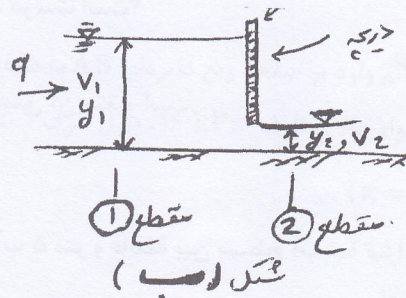 دریچه
q
V1
y1
y2, V2
1 مقطع
2 مقطع
شکل (ب)